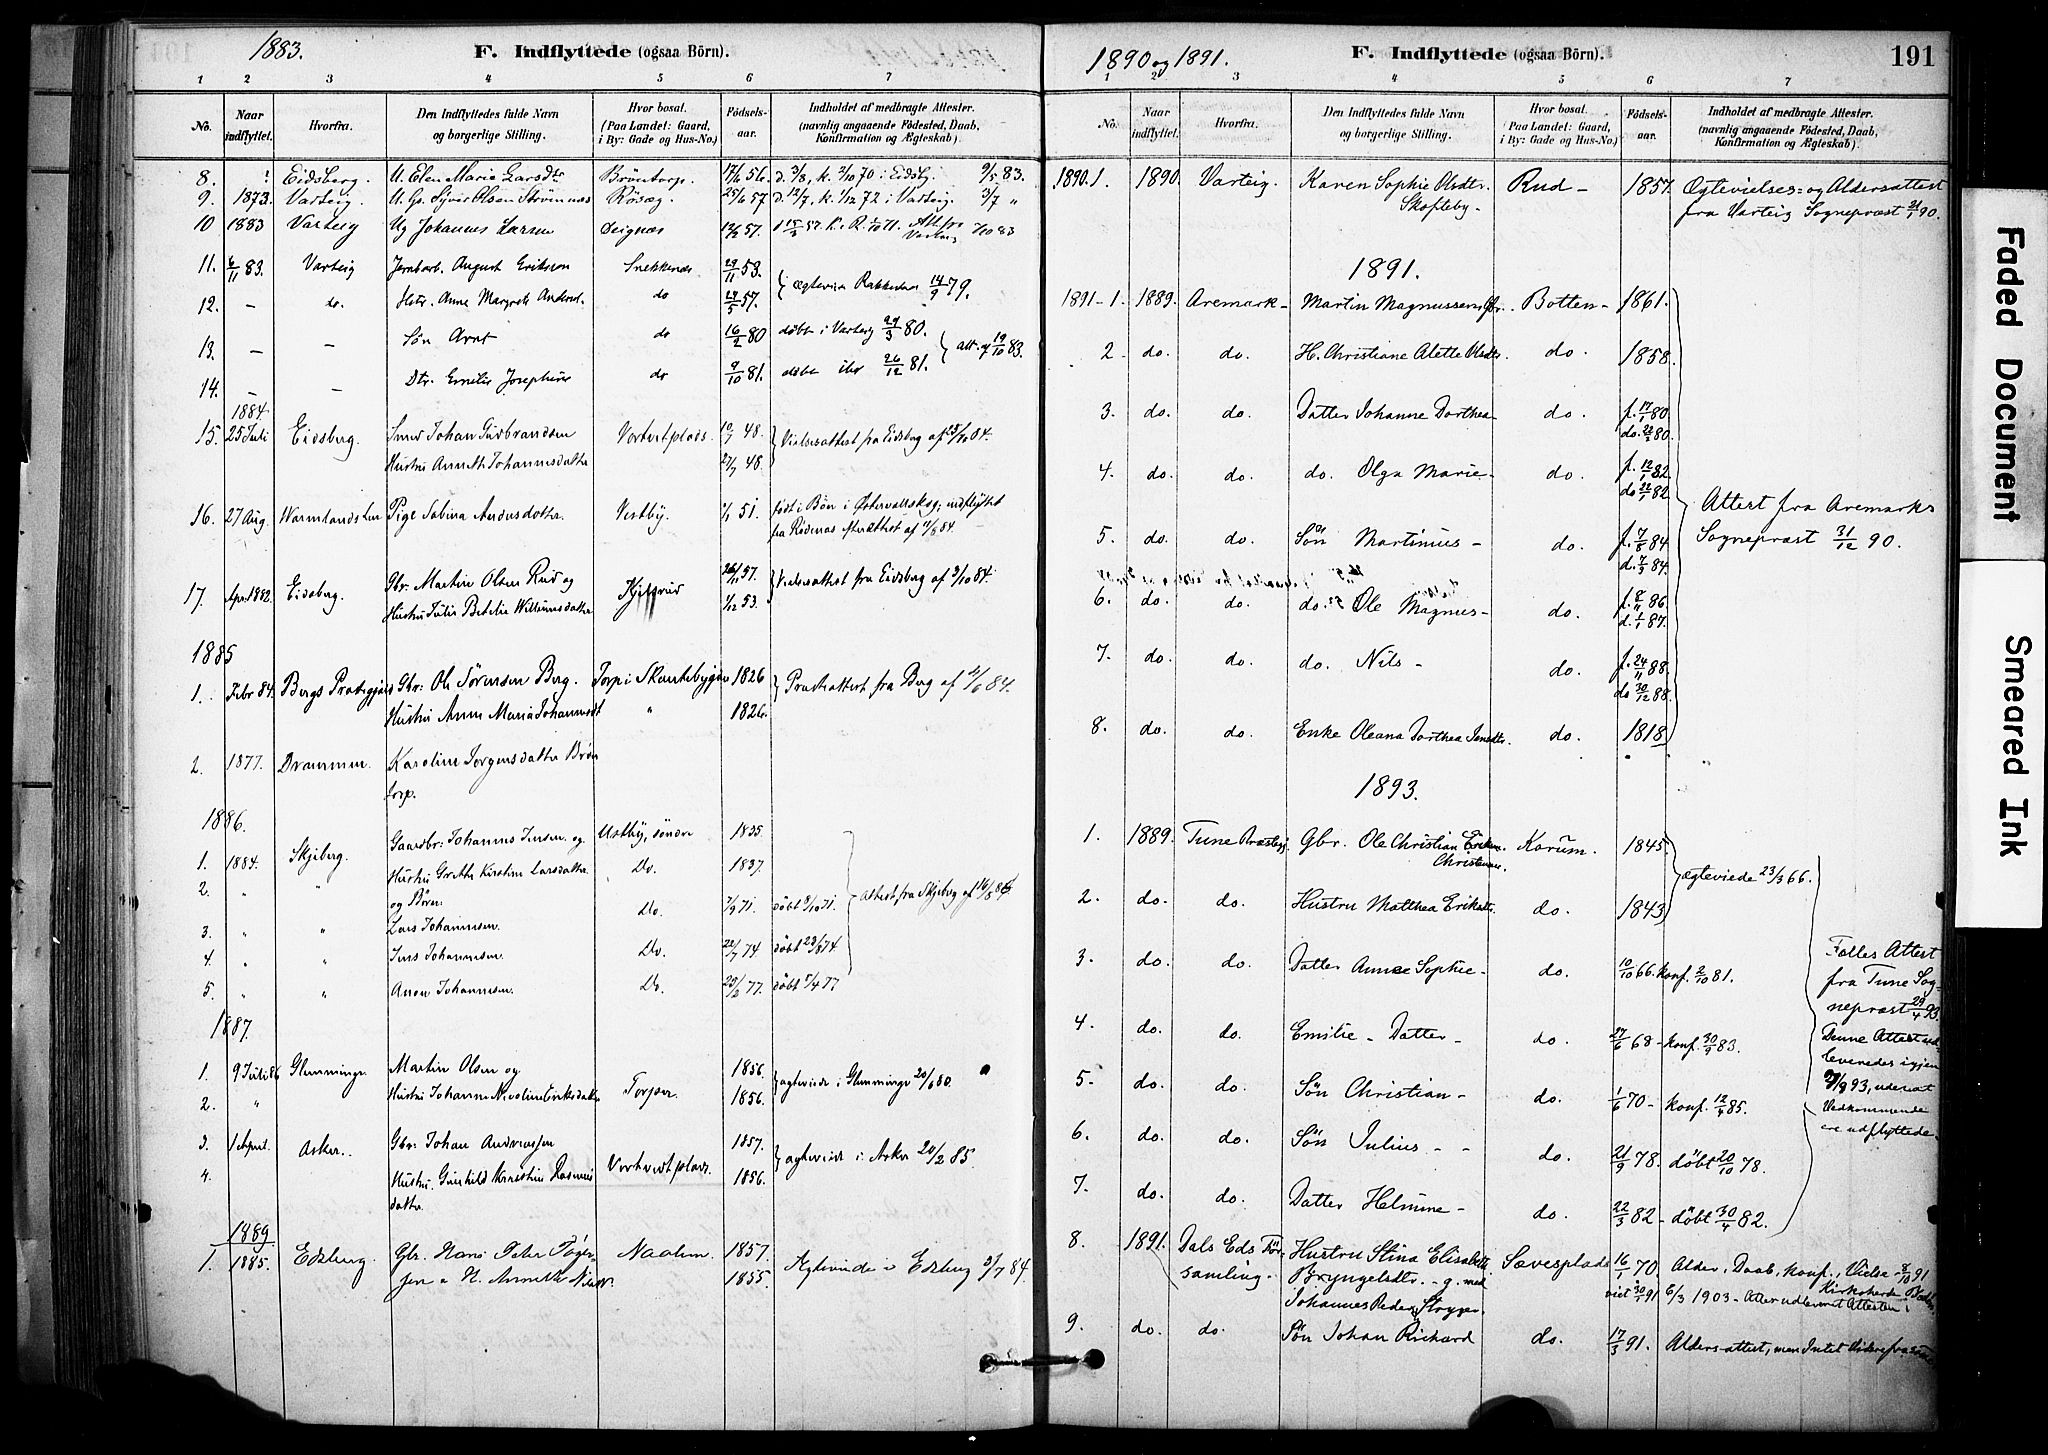 1883.
F. Indflyttede (ogsaa Börn).
1 2 3 4 5 6 7
No.
Naar indflyttet.
Hvorfra.
Den Indflyttedes fulde Navn og borgerlige Stilling.
Hvor bosat. (Paa Landet: Gaard, i By: Gade og Hus-No.)
Födsels-aar.
Indholdet af medbragte Attester. (navnlig angaaende Födested, Daab, Konfirmation og Ægteskab).
8. Eidsberg. U. Elen Marie Larsdtr Bröntorp. 17/6 56. d. 3/8, k. 2/10 70 i Eidsbg. 9/5 83.
9. 1873. Varteig. U. Gs. Syver Olsen Rösæg. 25/6 57 d. 12/7, k. 1/12 72 i Varteig. 3/7 "
10 1883 Varteig Ug Johannes Larsen 12/2 57. 7/10 83
11. 6/11 83. Varteig Jernbarb. August Eriksen Snekkenes 29/11 53.
12. — do. Hstr. Anne Margrethe Andersd. do 27/5 57. } ægteviede Rakkestad 14/9 79.
13. — — Søn Arnt do 16/2 80 döbt i Varteig 29/3 80.
14. — — Dtr. Emilie Josephine do 9/10 81. döbt ibd 26/12 81. } att. af 19/10 83.
1884.
15. 25 Juli Eidsberg. Smed Johan Gudbrandsen Vortvetplads. 10/7 48.
Hustru Anneth Johannesdatter 27/7 48. } Vielsesattest fra Eidsberg af 13/10 84.
16. 27 Aug. Warmlands Len Pige Sabina Andersdatter. Vestby. 51. født i Bön i Östervallskog; indflyttet
fra Rödenæs Attest af 11/8 84
17. Apr. 1882. Eidsberg. Gbr. Martin Olsen Rud og Kjilsrud 57.
Hustru Julie Betilie Williamsdatter 1/12 53. } Vielsesattest fra Eidsberg af 9/10 84.
1885
1. Febr 84. Bergs Prestegjæld Gbr: Ole Sörensen Berg. Torp i Skantebygden 1826
Hustru Anne Maria Johannesdt " 1826. } Præsteattest fra Berg af 21/6 84.
2. 1877. Drammen. Karoline Jörgensdatter Brön
torp.
1886.
1. 1884. Skjeberg. Gaardbr: Johannes Jensen og Ustby, söndre 1835.
2. " " Hustru Grethe Kirstine Larsdatter Do. 1837.
og Börn:
3. " " Lars Johannesen. Do. 7/9 71. döbt 8/10 71.
4. " " Jens Johannesen. Do. 22/7 74 döbt 23/8 74
5. " " Anon Johannesen. Do. 20/2 77. döbt 5/4 77
} Attest fra Skjeberg af 16/8 86
1887.
1. 9 Juli 86 Glemminge Martin Olsen og 1856.
2. " Hustru Johanne Nicoline Eriksdatter Torper. 1856. } ægteviede i Glemminge 20/6 80.
3. 1 April. Asker. Gbr: Johan Andreassen 1857.
4. Hustru. Gunhild Kirstine Rasmus
datter Vortvedtplads. 1856. } ægteviede i Asker 20/2 85.
1889
1. 1885. Edsberg. Gbr. Hans Peter Töger
sen o H. Annette Nilsdr. Naalum. 1857. 1855. Ægteviede i Edsberg 3/7 84.
1890 og 1891.
F. Indflyttede (ogsaa Börn).
191
1 2 3 4 5 6 7
No.
Naar indflyttet.
Hvorfra.
Den Indflyttedes fulde Navn og borgerlige Stilling.
Hvor bosat. (Paa Landet: Gaard, i By: Gade og Hus-No.)
Födsels-aar.
Indholdet af medbragte Attester. (navnlig angaaende Födested, Daab, Konfirmation og Ægteskab).
1890.1. 1890. Varteig. Karen Sophie Olsdtr. Rud - 1857. Ægtevielses: og Aldersattest
Skofteby. fra Varteig Sognepræst 21/1 90.
1891.
1891-1. 1889. Aremark - Martin Magnussen Gbr. Botten - 1861.
2 - do. do. H. Christiane Alette Olsdtr. do. 1858.
3. do. do. Datter Johanne Dorthea - do. f. 17/1 80
do. 22/2 80.
4. do. do. do. Olga Marie - do. f. 12/1 82.
do 22/1 82.
5. do. do. Sön Martinius - do. f. 7/8 84
d. 7/3 84.
6. do. do. do. Ole Magnus - do. f. 8/11 86
d. 1/1 87.
7. do. do. do. Nils - do. f. 24/11 88
do 30/12 88.
8. do. do. Enke Oleana Dorthea Jensdtr. do. 1818
Attest fra Aremarks
Sognepræst 31/12 90.
1893.
1. 1889. Tune Præstegj. Gbr. Ole Christian Eriksen Karum. 1845.
Christensen.
2. do. do. Hustru Matthea Eriksdtr. do. 1843 } ægteviede 23/3 66.
3. do. do. Datter Annæ Sophie - do. 10/10 66. konf. 2/10 81.
4. do. do. Emilie - Datter - do. 27/6 68 - konf. 30/9 83.
5. do. do. Sön Christian - do. 1/6 70 - konf. 12/4 85.
6. do. do. Sön Julius - - do. 21/9 78. döbt 20/10 78.
7. do. do. Datter Helmine - do. 22/3 82 - döbt 30/4 82.
Fælles Attest
fra Tune Sog-
nepræst 29/4 93.
Denne Attest ud-
leveredes igjen
93, uden at
Vedkommende
ere udflyttede.
8. 1891. Dals Eds För- Hustru Stina Elisabeth Sævesplads 16/1 70. Alder, Daab, konf., Vielse - 8/10 91
samling - Bryngelsdtr. - g. med viet 30/1 91 6/3 1903 - Atter udleveret Attesten.
Johannes Peder Stryger.
9. do. do. Sön Johan Richard do. 17/3 91. Aldersattest, men Intet videre fra
Faded Document
Smeared Ink